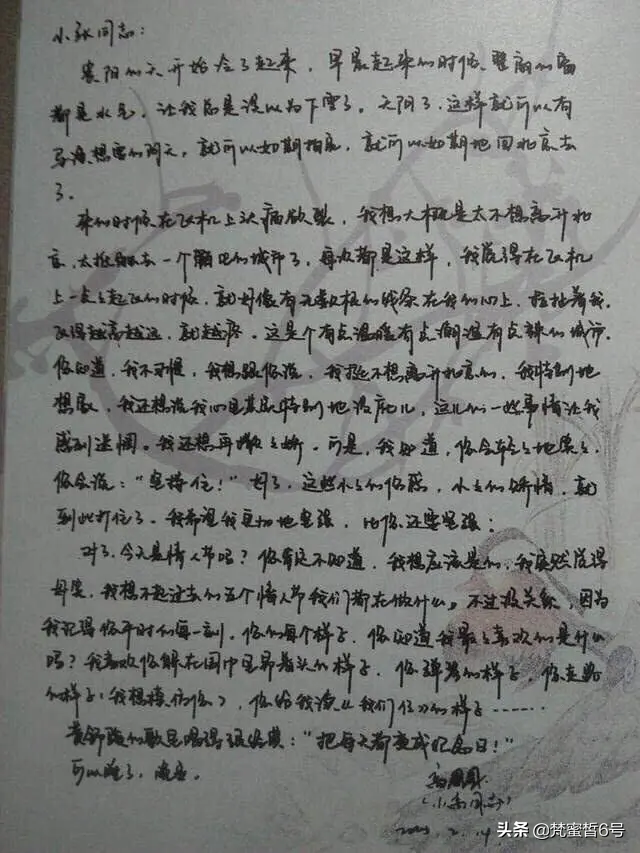 小张同志：
襄阳的天开始冷了起来，早晨起来的时候，整扇的窗
都是水气，让我总是误以为下雪了。天阴了，这样就可以有
导演想要的阴天，就可以如期拍完，就可以如期地回北京去
了。
来的时候在飞机上头痛欲裂，我想大概是太不想离开北
京，太抵触去一个陌生的城市了，每次都是这样，我觉得在飞机
上一点点起飞的时候，就好像有无数根的线系在我的心上，拉扯着我，
飞得越高越远，就越疼。这是个有点温暖有点潮湿有点辣的城市，
你知道，我不习惯，我想跟你说，我挺不想离开北京的，我特别地
想家，我还想说我心里其实特别地没底儿，这儿的一些事情让我
感到迷惘。我还想再撒撒娇。可是，我知道，你会轻轻地笑笑，
你会说：“坚持住！”对了，这些小小的伤感，小小的矫情，就
到此打住了。我希望我更加地坚强，比你还要坚强；
对了，今天是情人节吗？你肯定不知道，我想应该是的，我突然觉得
好笑，我想不起过去的五个情人节我们都在做什么。不过没关系，因为
我记得你平时的每一刻，你的每个样子，你知道我最喜欢的是什么
吗？我喜欢你躲在围巾里昂着头的样子，你弹琴的样子，你走路
的样子（我想模仿你），你给我读《我们仨》的样子……
黄舒骏的歌里唱得很好：“把每天都变成纪念日！”
可以睡了，晚安。
（小高同志）
2003.2.14
头条 @梵蜜皙6号